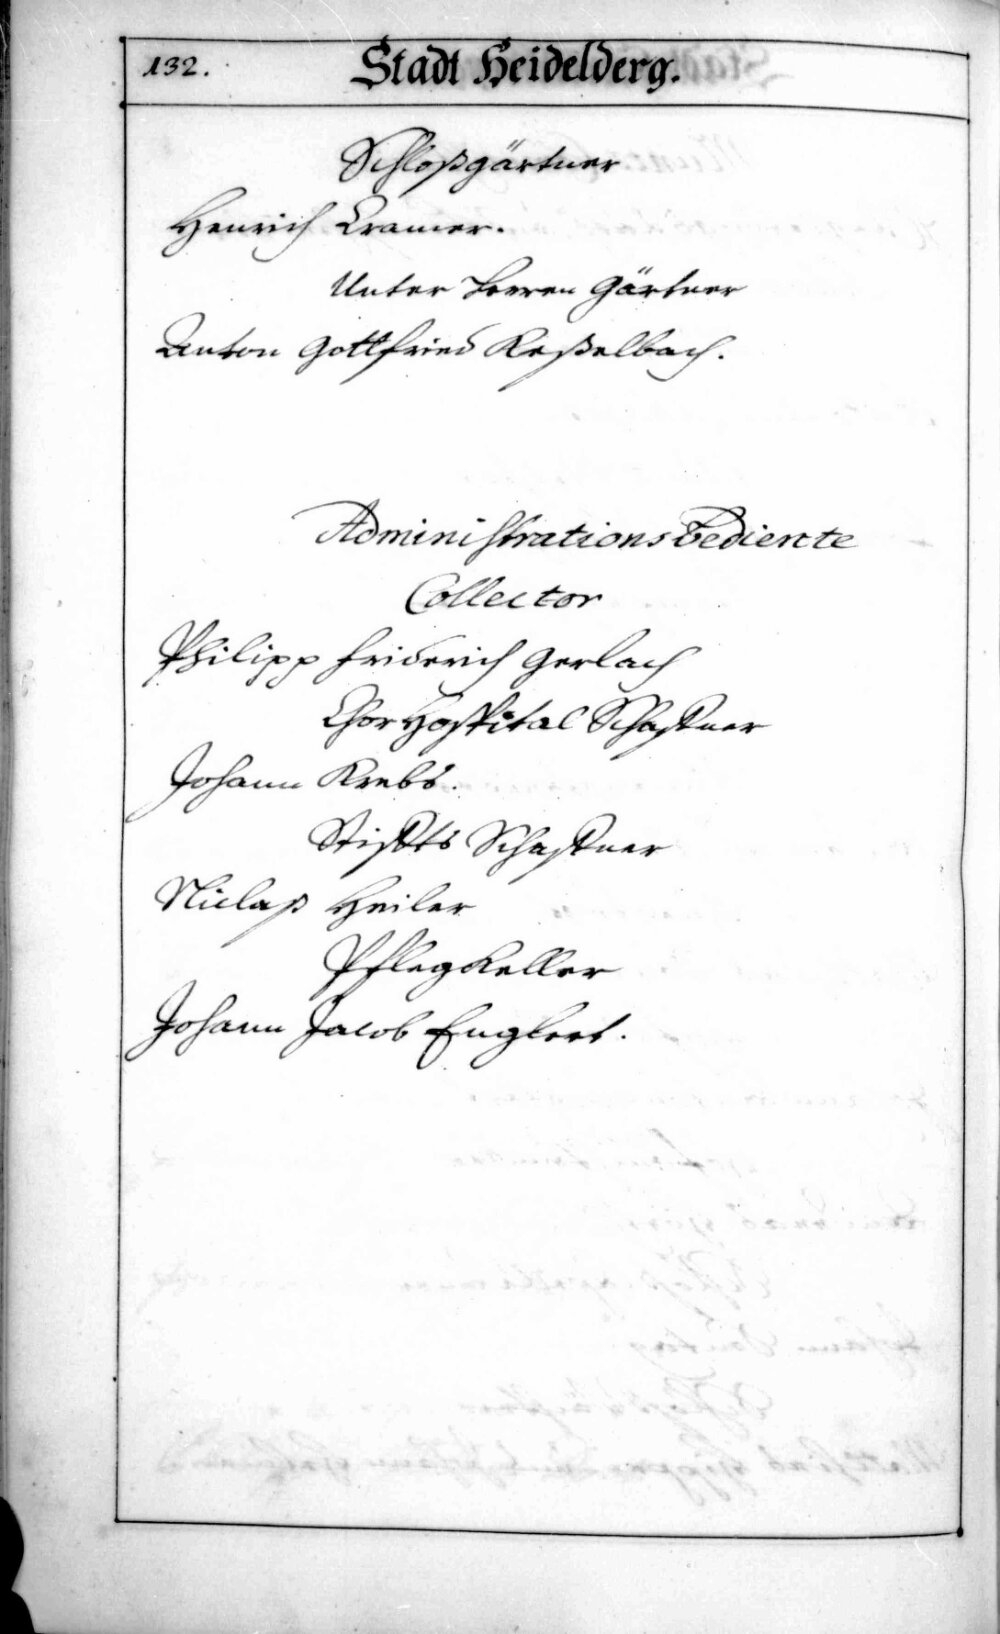 132.
Stadt Heidelderg.
Schloßgärtner
Henrich Cramer.
Unter Herren Gärtner
Anton Gottfried Keßelbach.
Administrationsbediente
Collector
Philipp Friderich Gerlach
Chor Hospital Schaffner
Johann Krebs.
Stiffts Schaffner
Niclaß Heiler
Pfleg Keller
Johann Jacob Englert.